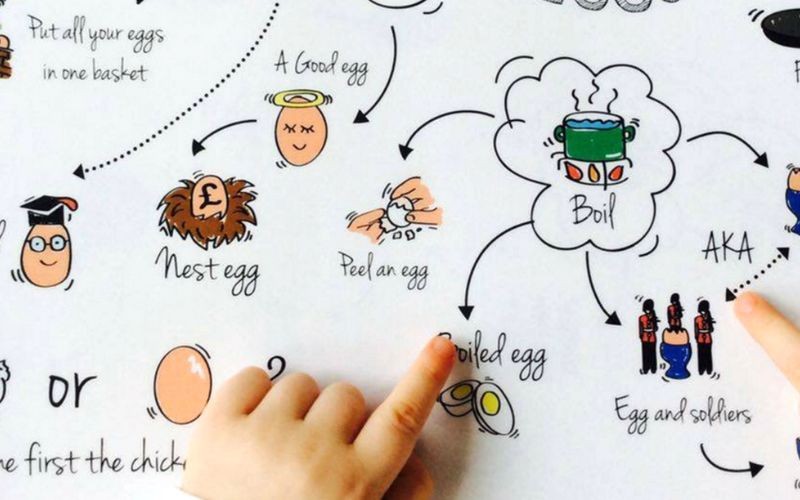 Put all your eggs
in one basket
A Good egg
£
Nest egg
Peel an egg
Boil
AKA
oiled egg
Egg and soldiers
or
?
first the chick